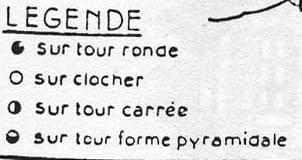 LEGENDE
sur tour ronde
sur clocher
sur tour carrée
sur tour forme pyramidale